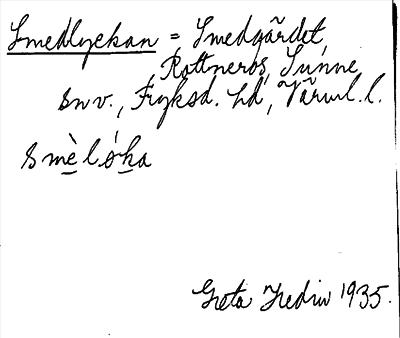 Smedlyckan = Smedgärdet,
Rottneros, Sunne
snv., Fryksd. hd, Värml. l.
smè̱ló̱ḵa
Greta Hedin 1935.